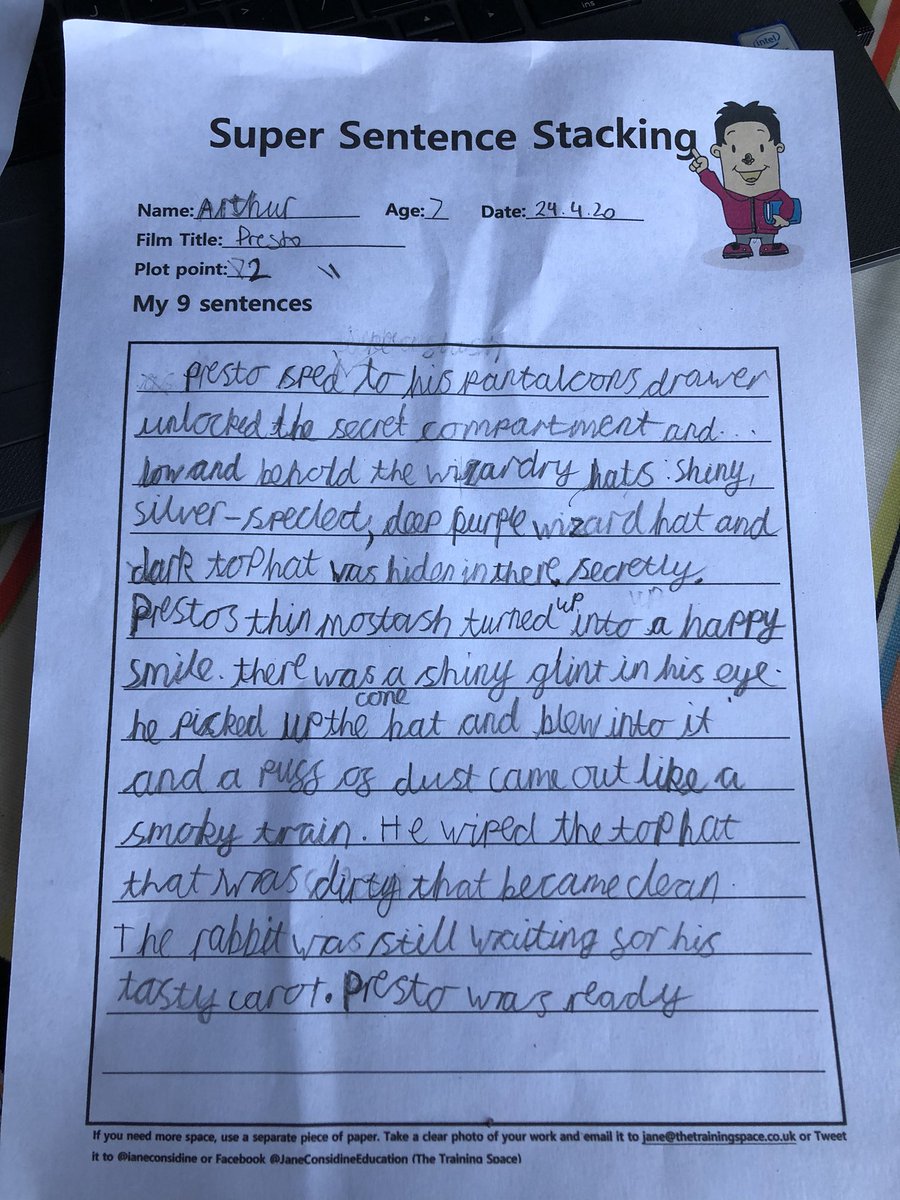 intel
Super Sentence Stacking
Name: Arthur Age: 7 Date: 24.4.20
Film Title: Presto
Plot point: 2
My 9 sentences
Presto sped to his pantaloons drawer
unlocked the secret compartment and...
low and behold the wizardry hats: shiny,
silver-specled, deep purple wizard hat and
dark tophat was hiden in there secretly.
Prestos thin mostash turned up into a happy
smile. there was a shiny glint in his eye.
he picked up the cone hat and blew into it
and a puff of dust came out like a
smoky train. He wiped the tophat
that was dirty that became clean.
The rabbit was still waiting for his
tasty carot. Presto was ready
If you need more space, use a separate piece of paper. Take a clear photo of your work and email it to jane@thetrainingspace.co.uk or Tweet
it to @janeconsidine or Facebook @JaneConsidineEducation (The Training Space)